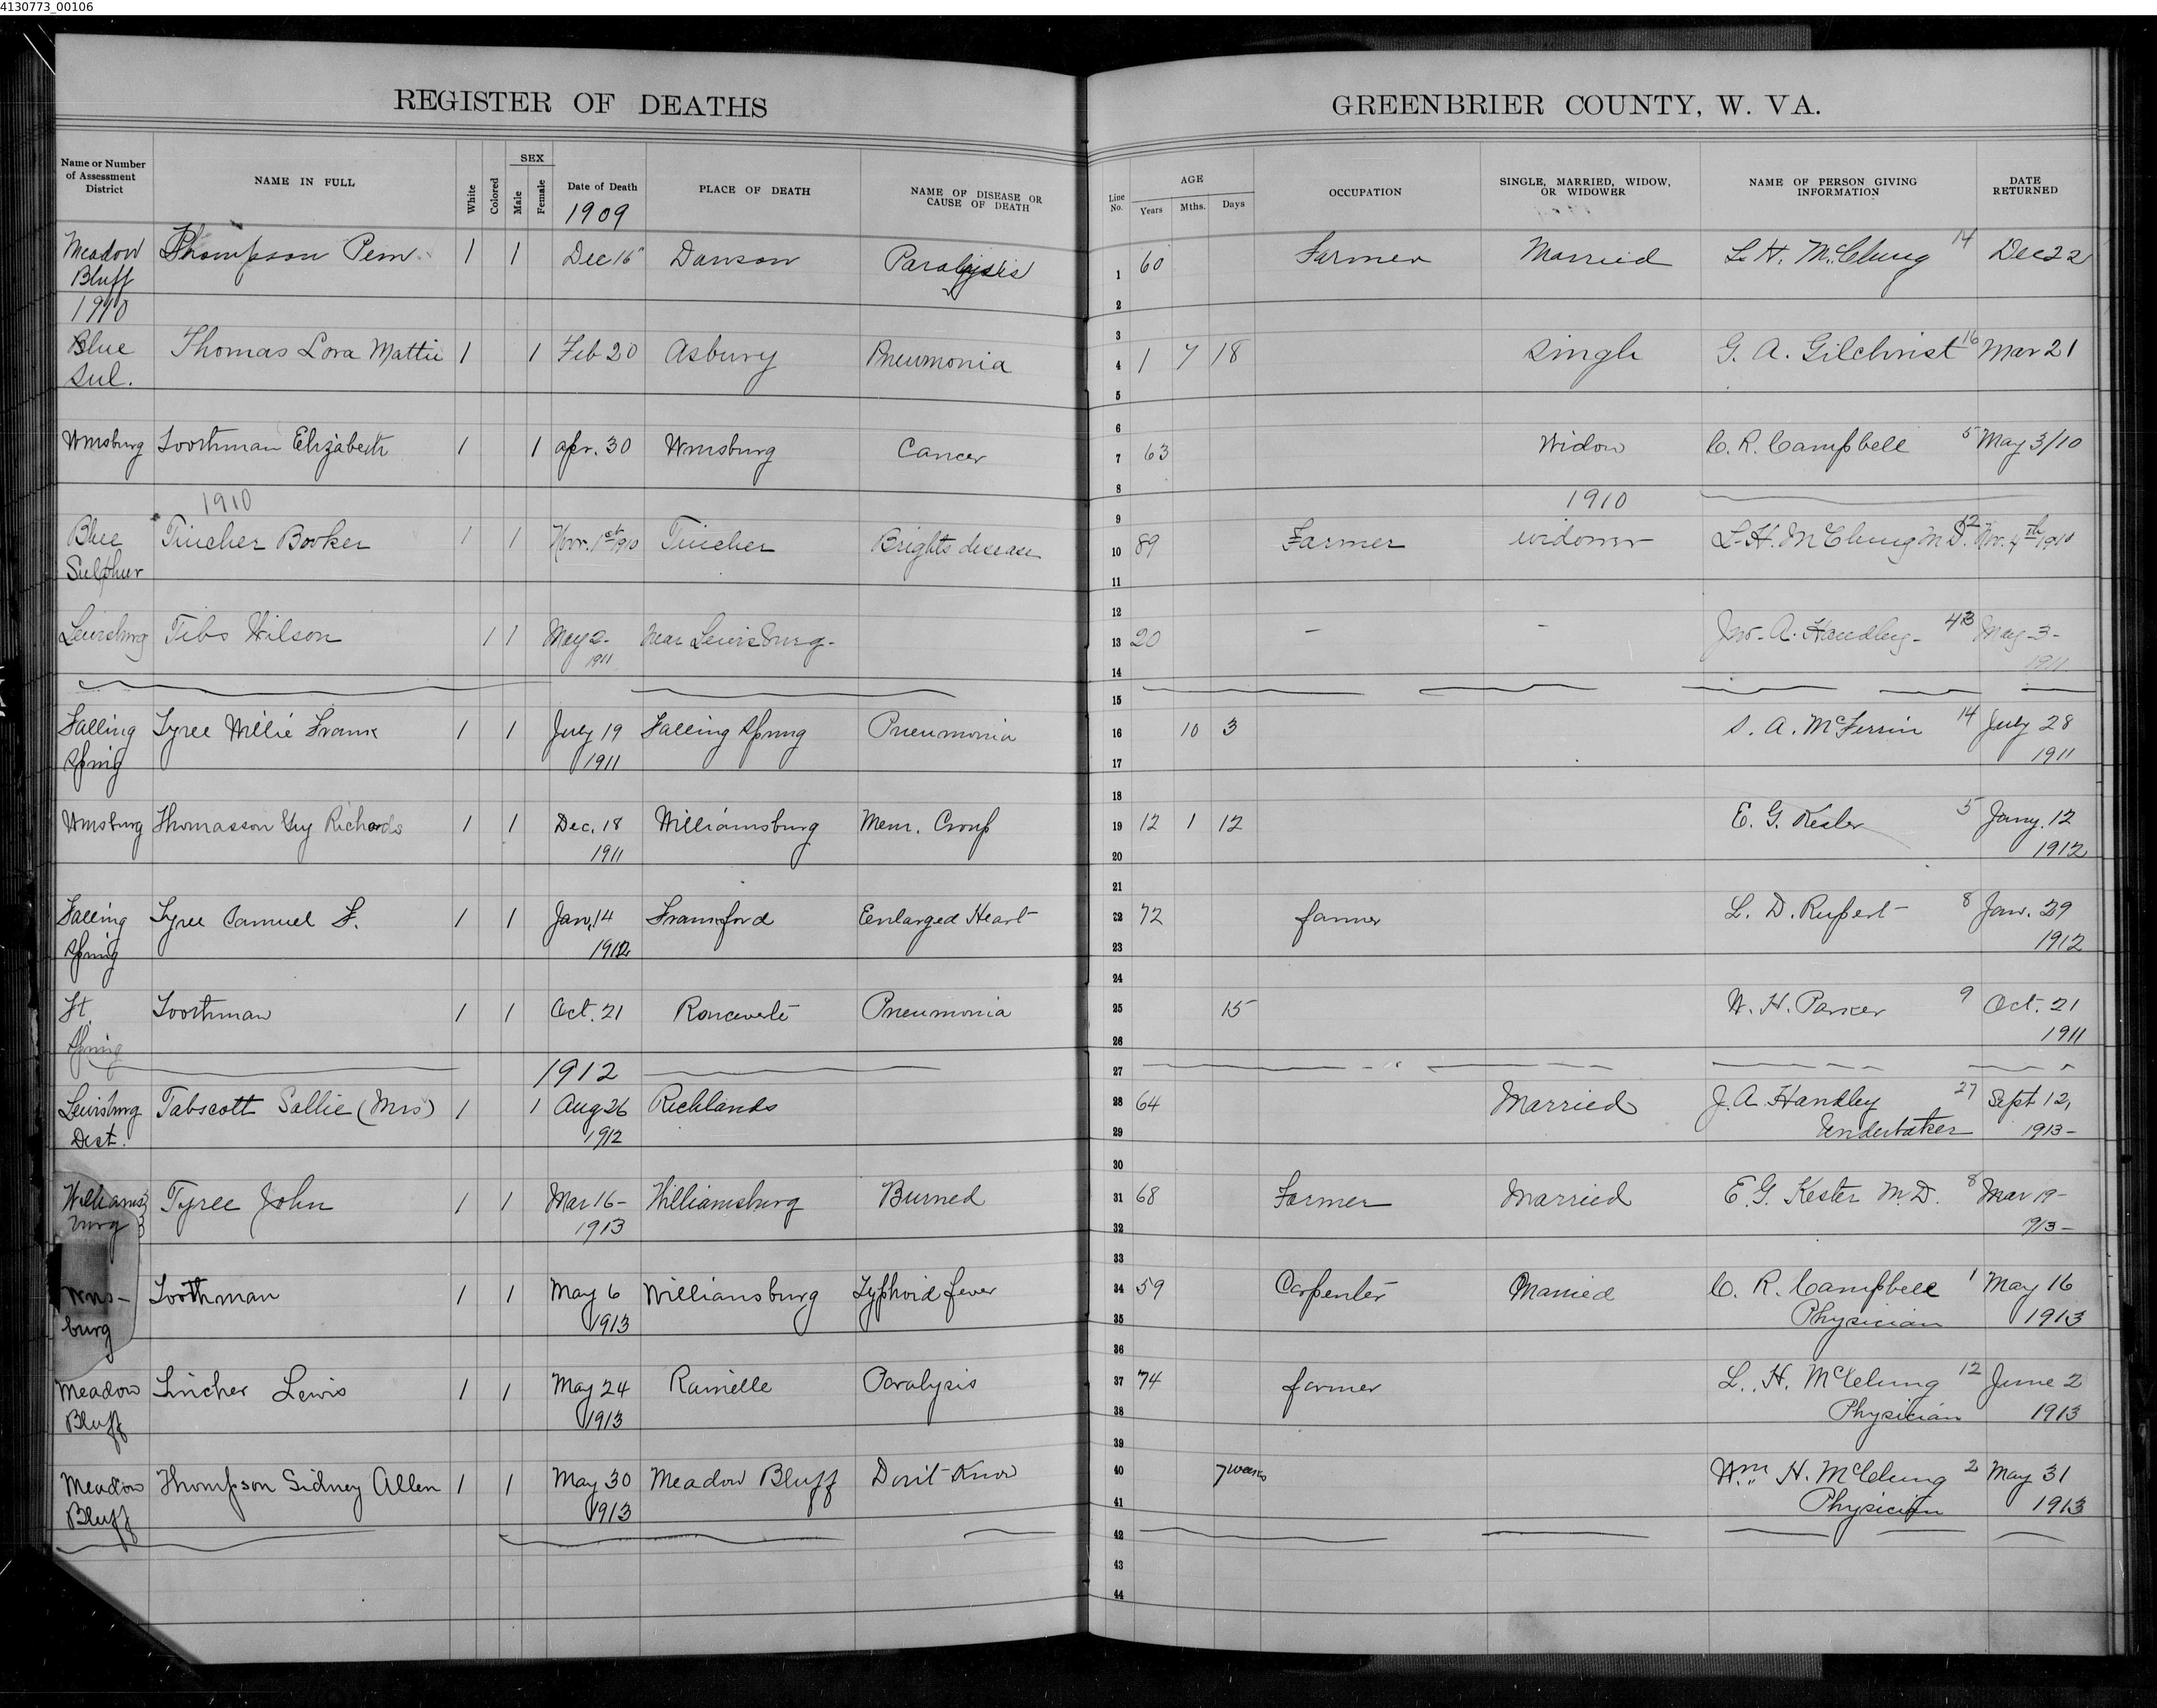 4130773_00106
REGISTER OF DEATHS
GREENBRIER COUNTY, W. VA.
Name or Number of Assessment District
NAME IN FULL
White
Colored
SEX
Male
Female
Date of Death
1909
PLACE OF DEATH
NAME OF DISEASE OR CAUSE OF DEATH
Line No.
AGE
Years
Mths.
Days
OCCUPATION
SINGLE, MARRIED, WIDOW, OR WIDOWER
NAME OF PERSON GIVING INFORMATION
DATE RETURNED
Meadow Bluff Thompson Pem 1 1 Dec 15 Dawson Paralysis 1 60 Farmer Married L. H. McClung 14 Dec 22
2
1910
3
Blue Sul. Thomas Lora Mattie 1 1 Feb 20 Asbury Pneumonia 4 1 7 18 Single G. A. Gilchrist 16 Mar 21
5
6
Wmsburg Toothman Elizabeth 1 1 Apr. 30 Wmsburg Cancer 7 63 Widow C. R. Campbell 5 May 3/10
8
1910 1910
9
Blue Sulphur Tincher Booker 1 1 Nov. 1st 1910 Tincher Brights disease 10 89 Farmer widower L. H. McClung M D. 12 Nov. 4th 1910
11
12
Lewisburg Tibs Wilson 1 1 May 2- 1911 Near Lewisburg- 13 20 - - Jno. A. Handley- 43 May-3- 1911
14
15
Falling Spring Tyree Willie Frank 1 1 July 19 1911 Falling Spring Pneumonia 16 10 3 S. A. McFerrin 14 July 28 1911
17
18
Wmsburg Thomasson Guy Richards 1 1 Dec. 18 1911 Williamsburg Mem. Croup 19 12 1 12 E. G. Kesler 5 Jany. 12 1912
20
21
Falling Spring Tyree Samuel F. 1 1 Jan. 14 1912 Frankford Eenlarged Heart 22 72 farmer L. D. Rupert 8 Jan. 29 1912
23
24
Ft Spring Toothman 1 1 Oct. 21 Ronceverte Pneumonia 25 15 W. H. Parker 9 Oct. 21 1911
26
1912
27
Lewisburg Dist. Tabscott Sallie (Mrs) 1 1 Aug 26 1912 Richlands 28 64 Married J. A. Handley Undertaker 27 Sept 12, 1913-
29
30
Williamsburg Tyree John 1 1 Mar 16- 1913 Williamsburg Burned 31 68 Farmer Married E. G. Kester M. D. 8 Mar 19- 913-
32
33
Wms-burg Toothman 1 1 May 6 1913 Williansburg Typhoid fever 34 59 Carpenter Married C. R. Campbell Physician 1 May 16 1913
35
36
Meadow Bluff Tincher Lewis 1 1 May 24 1913 Rainelle Paralysis 37 74 farmer L. H. McClung Physician 12 June 2 1913
38
39
Meadow Bluff Thompson Sidney Allen 1 1 May 30 1913 Meadow Bluff Don't Know 40 7 weeks Wm H. McClung Physician 2 May 31 1913
41
42
43
44